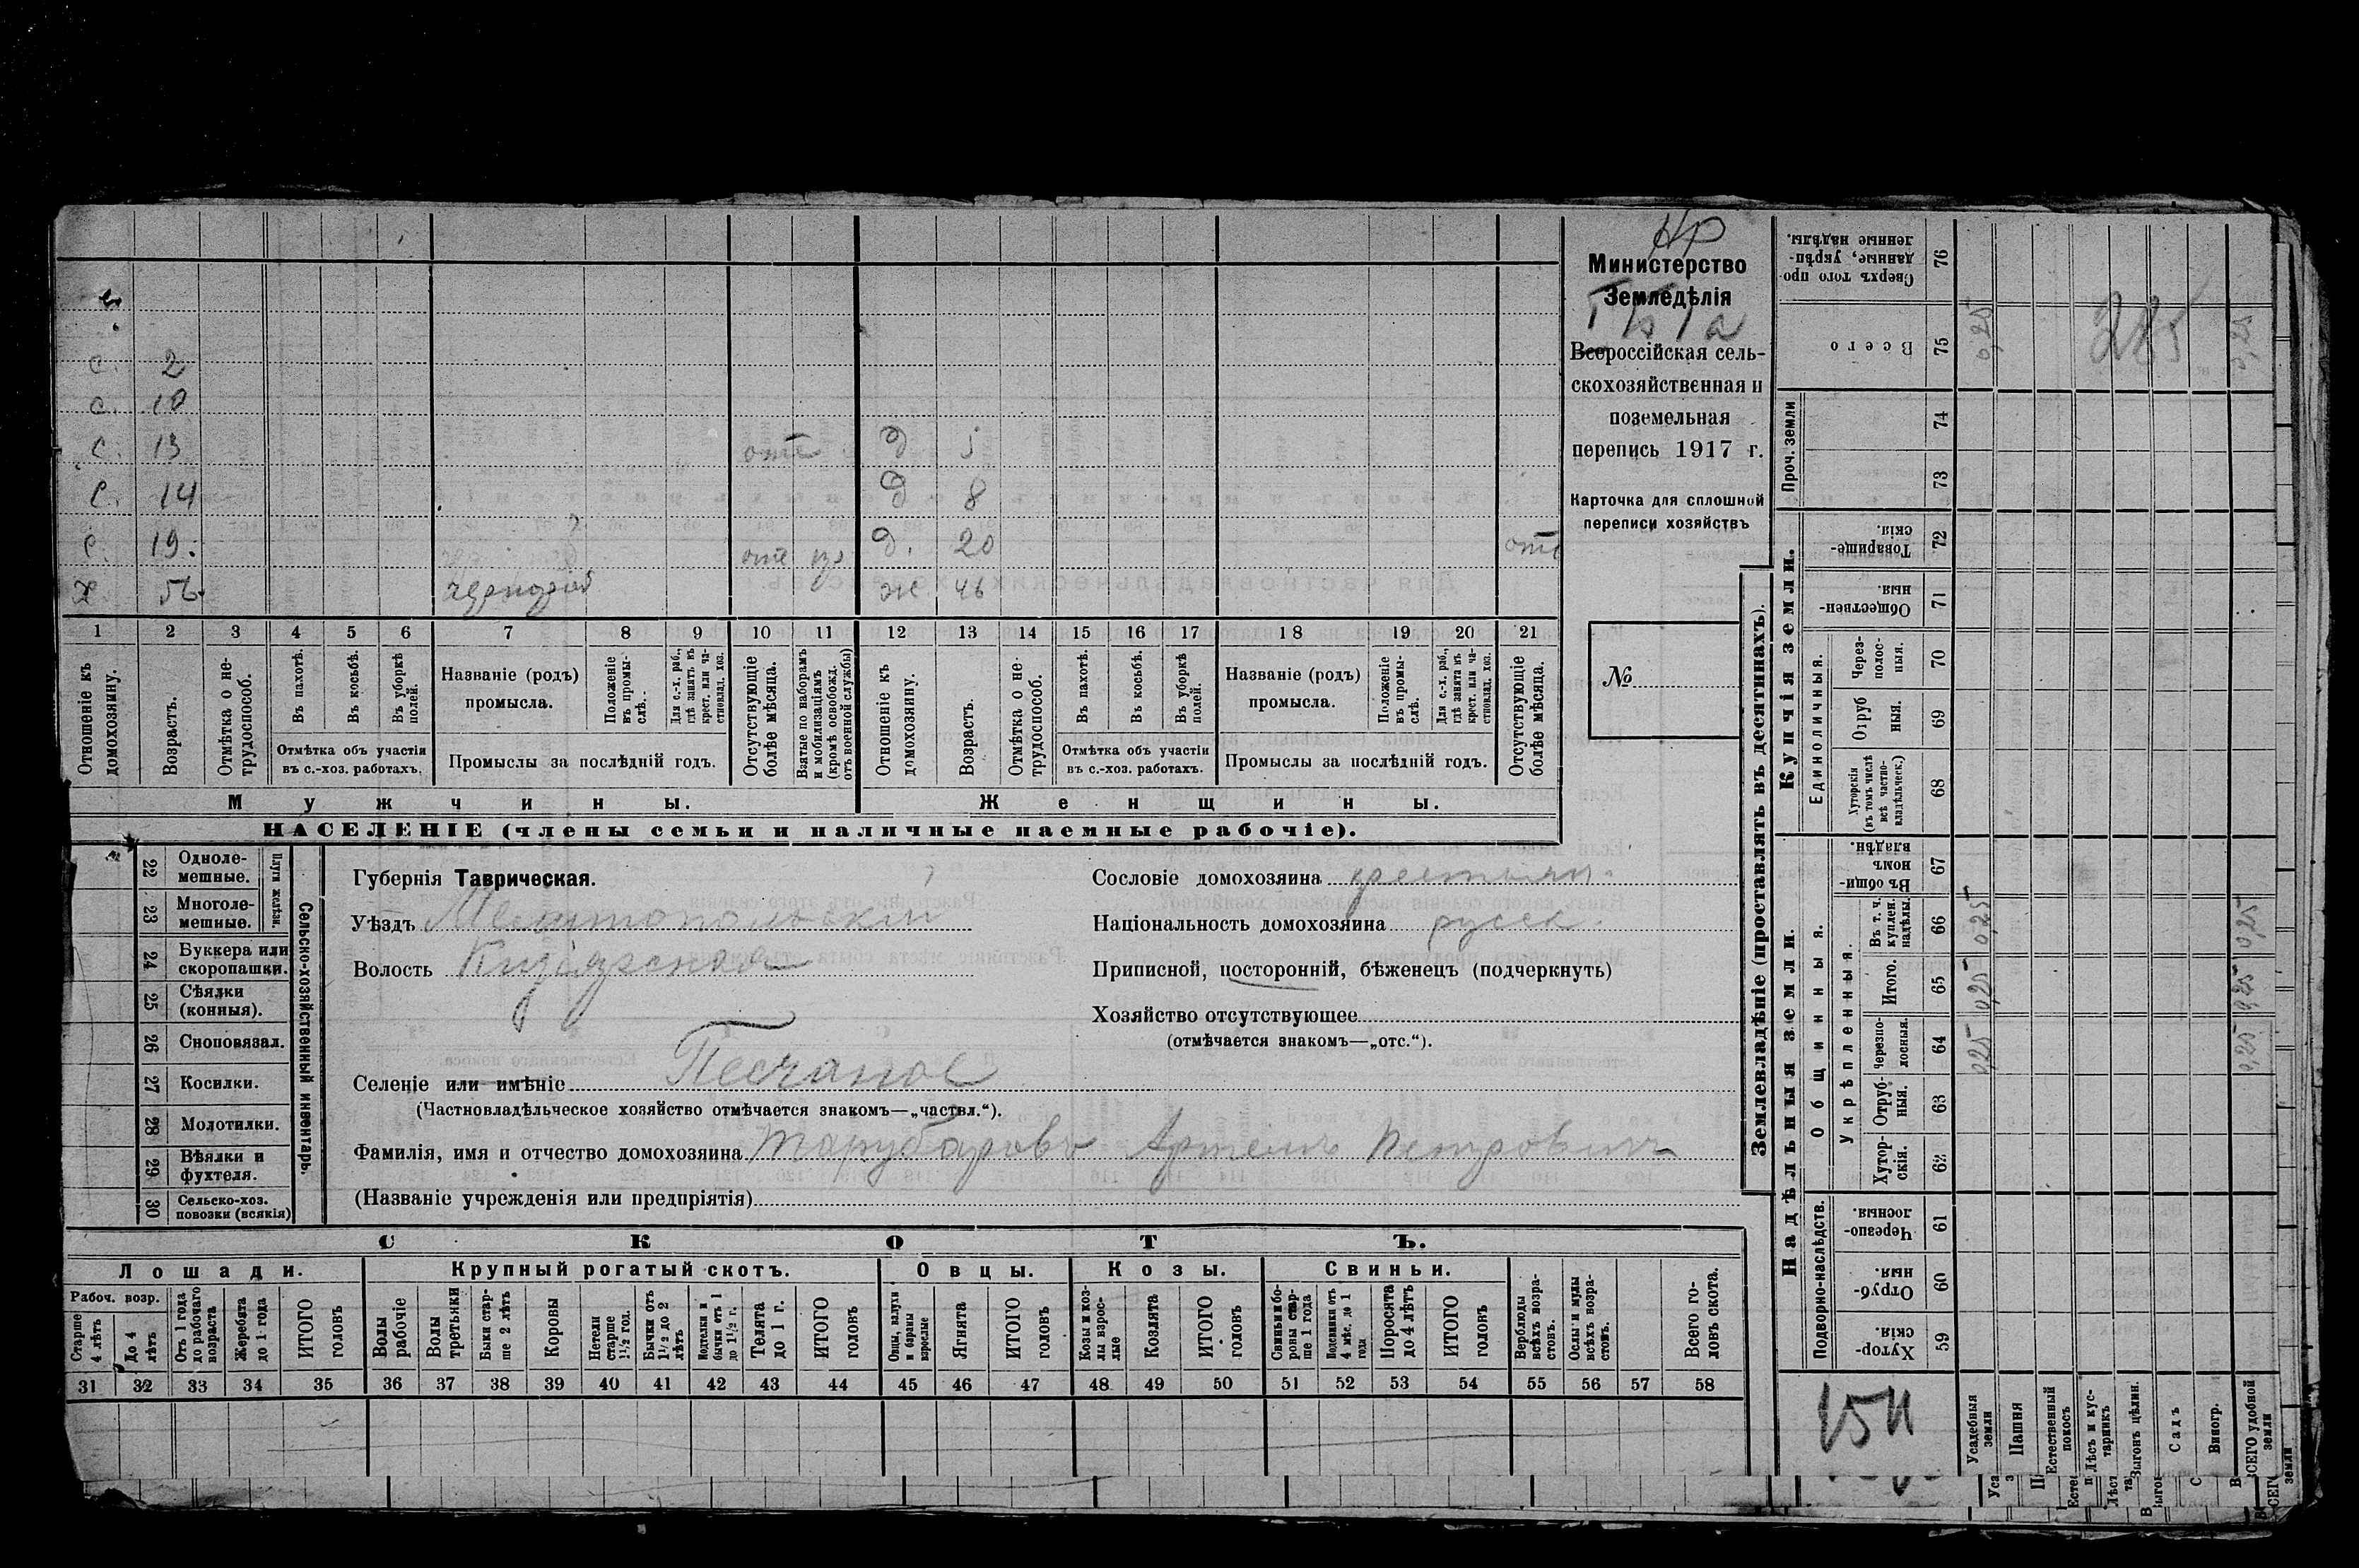 Нр
Министерство
Земледѣлія
Всероссійская сель-
скохозяйственная и
поземельная
перепись 1917 г.
Карточка для сплошной
переписи хозяйствъ
№
с. 2
с. 10
с. 13 отс д 5
с. 14 д 8
с. 19. отс д. 20 отс
х 56. ж 46
1 2 3 4 5 6 7 8 9 10 11 12 13 14 15 16 17 18 19 20 21
Отношеніе къ домохозяину.
Возрастъ.
Отмѣтка о не-трудоспособ.
Въ пахотѣ.
Въ косьбѣ.
Въ уборкѣ полей.
Отмѣтка объ участіи въ с.-хоз. работахъ.
Названіе (родъ) промысла.
Положеніе въ промы-слѣ.
Для с.-х. раб., гдѣ занятъ въ крест. или ча-стновлад. хоз.
Промыслы за послѣдній годъ.
Отсутствующіе болѣе мѣсяца.
Взятые по наборамъ и мобилизаціямъ (кромѣ освобожд. отъ военной службы)
Отношеніе къ домохозяину.
Возрастъ.
Отмѣтка о не-трудоспособ.
Въ пахотѣ.
Въ косьбѣ.
Въ уборкѣ полей.
Отмѣтка объ участіи въ с.-хоз. работахъ.
Названіе (родъ) промысла.
Положеніе въ промы-слѣ.
Для с.-х. раб., гдѣ занята въ крест. или ча-стновлад. хоз.
Промыслы за послѣдній годъ.
Отсутствующіе болѣе мѣсяца.
Мужчины.
Женщины.
НАСЕЛЕНІЕ (члены семьи и наличные наемные рабочіе).
22 Одноле-мешные.
23 Многоле-мешные.
Плуги желѣзн.
24 Буккера или скоропашки.
25 Сѣялки (конныя).
26 Сноповязал.
27 Косилки.
28 Молотилки.
29 Вѣялки и фухтеля.
30 Сельско-хоз. повозки (всякія)
Сельско-хозяйственный инвентарь.
Губернія Таврическая.
Уѣздъ Мелитопольскій
Волость Кизіярская
Селеніе или имѣніе Песчаное
(Частновладѣльческое хозяйство отмѣчается знакомъ—„частвл.“).
Фамилія, имя и отчество домохозяина Тарубаровъ Артемъ Петровичъ
(Названіе учрежденія или предпріятія)
Сословіе домохозяина крестьян.
Національность домохозяина русск.
Приписной, посторонній, бѣженецъ (подчеркнуть)
Хозяйство отсутствующее
(отмѣчается знакомъ—„отс.“).
СКОТЪ.
Лошади.
Крупный рогатый скотъ.
Овцы.
Козы.
Свиньи.
Рабоч. возр.
Старше 4 лѣтъ
До 4 лѣтъ
Отъ 1 года до рабочаго возраста
Жеребята до 1 года
ИТОГО головъ
Волы рабочіе
Волы третьяки
Быки стар-ше 2 лѣтъ
Коровы
Нетели старше 1½ год.
Бычки отъ 1½ до 2 лѣтъ
Нетелки и бычки отъ 1 до 1½ г.
Телята до 1 г.
ИТОГО головъ
Овцы, валухи и бараны взрослые
Ягнята
ИТОГО головъ
Козы и коз-лы взрос-лые
Козлята
ИТОГО головъ
Свиньи и бо-ровы стар-ше 1 года
Подсвинки отъ 4 мѣс. до 1 года
Поросята до 4 лѣтъ
ИТОГО головъ
Верблюды всѣхъ возра-стовъ.
Ослы и мулы всѣхъ возра-стовъ.
Всего го-ловъ скота.
31 32 33 34 35 36 37 38 39 40 41 42 43 44 45 46 47 48 49 50 51 52 53 54 55 56 57 58
Землевладѣніе (проставлять въ десятинахъ).
Надѣльныя земли.
Купчія земли.
Проч. земли
Подворно-наслѣдств.
Общинныя.
Укрѣпленныя.
Единоличныя.
59 Хутор-скія.
60 Отруб-ныя.
61 Черезпо-лосныя.
62 Хутор-скія.
63 Отруб-ныя.
64 Черезпо-лосныя. 0,25 0,25
65 Итого. 0,25 0,25
66 Въ т. ч. куплен. надѣлы. 0,25 0,25
67 Въ общи-номъ владѣн.
68 Хуторскія (въ томъ числѣ всѣ частно-владѣльческ.)
69 Отруб ныя.
70 Через-полос-ныя.
71 Обществен-ныя
72 Товарище-скія.
73
74
75 Всего 0,25 0,25
76 Сверхъ того про-данные, укрѣп-ленные надѣлы.
285
Усадебныя земли
Пашня
Естественный покосъ
Лѣсъ и кус-тарникъ
Выгонъ цѣлин.
Садъ
Виногр.
ВСЕГО удобной земли